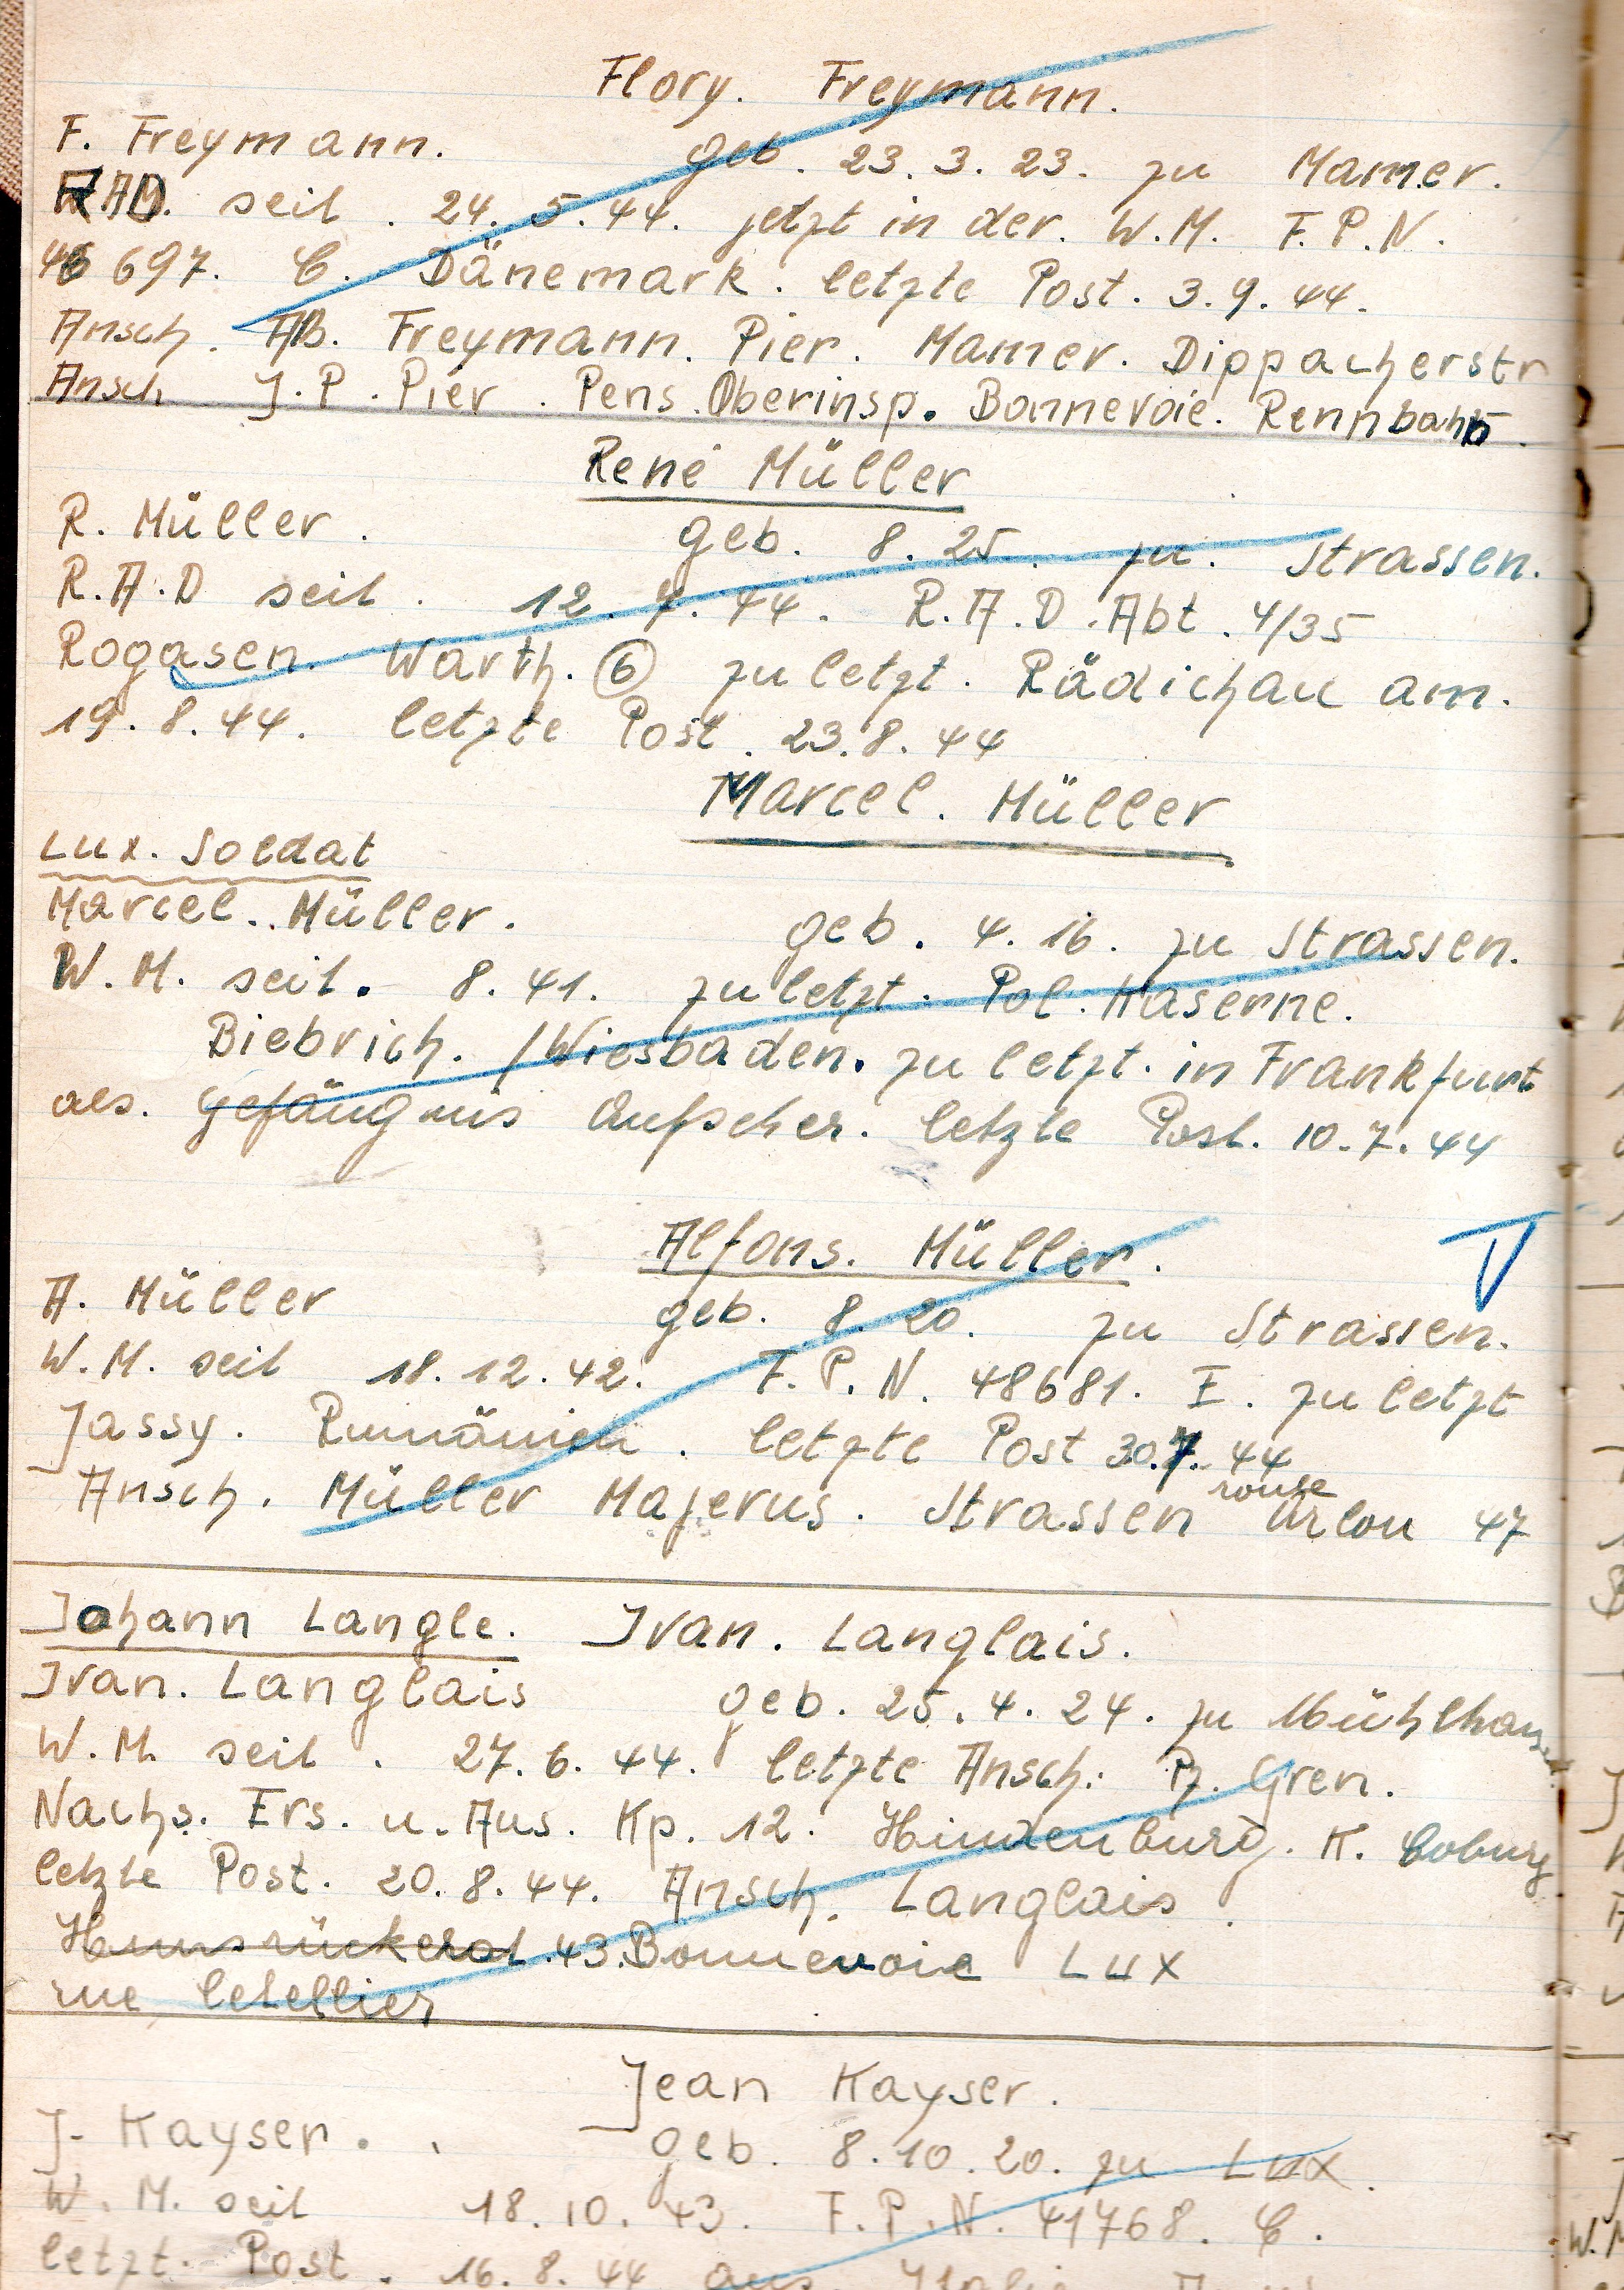 Flory. Freymann.
F. Freymann. geb. 23. 3. 23. zu Mamer.
RAD. seit . 24. 5. 44. jetzt in der. W.M. F.P.N.
46 697. C. Dänemark. letzte Post. 3.9.44.
Ansch. AB. Freymann. Pier. Mamer. Dippacherstr
Ansch J.P. Pier. Pens. Oberinsp. Bonnevoie. Rennbahn.
René Müller
R. Müller. geb. 8. 25. zu. Strassen.
R.A.D seit. 12. 7. 44. R.A.D. Abt. 4/35
Rogasen. Warth. (6) zuletzt. Rädichau am.
19. 8. 44. letzte Post. 23. 8. 44
Marcel. Müller
Lux. Soldat
Marcel. Müller. geb. 4. 16. zu Strassen.
W.M. seit. 8. 41. zuletzt. Pol. Kaserne.
Biebrich. /Wiesbaden. zuletzt. in Frankfurt
als. Gefängnis Aufseher. letzte Post. 10. 7. 44
Alfons. Müller.
A. Müller geb. 8. 20. zu Strassen.
W.M. seit 18. 12. 42. F.P.N. 48681. E. zuletzt
Jassy. Rumänien. letzte Post 30.7. 44
Ansch. Müller Majerus. Strassen route Arlon 47
Johann Langle. Ivan. Langlais.
Ivan. Langlais geb. 25. 4. 24. zu Mühlhausen.
W.M. seit. 27. 6. 44. letzte Ansch: Pz. Gren.
Nachs. Ers. u. Aus. Kp. 12. Hindenburg. K. Coburg
letzte Post. 20. 8. 44. Ansch. Langlais.
Hunsrückerst. 43. Bonnevoie Lux
rue Letellier
Jean Kayser.
J. Kayser. geb. 8. 10. 20. zu Lux.
W.M. seit 18. 10. 43. F.P.N. 41768. C.
letzt. Post. 16. 8. 44 aus Italie